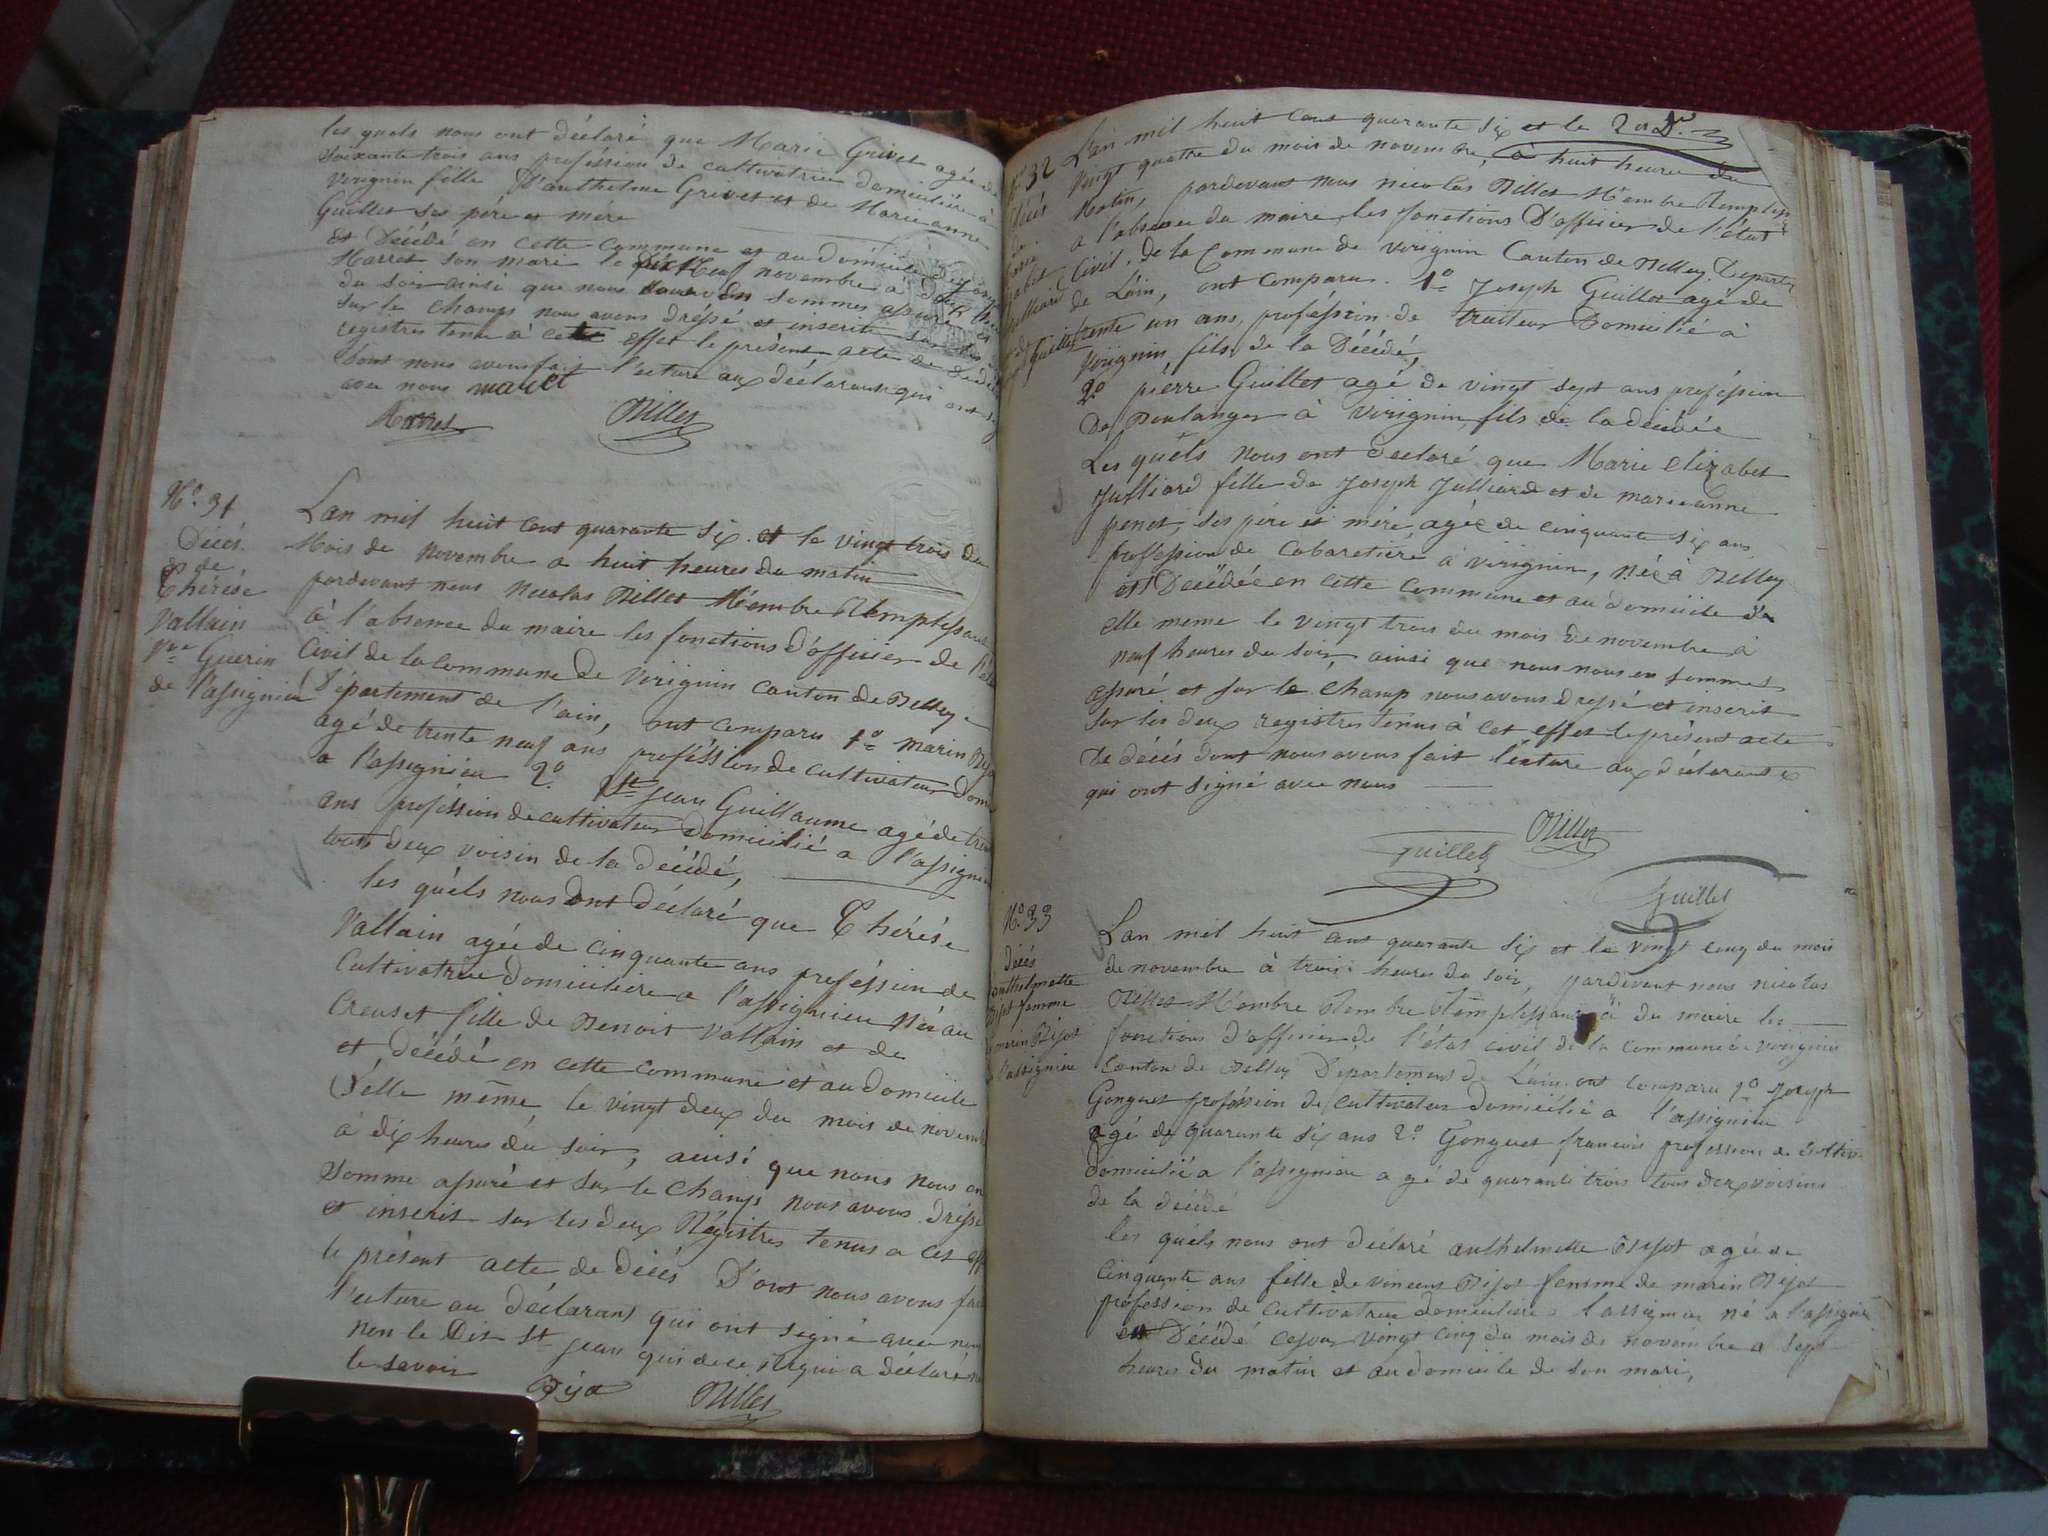 les quels nous ont déclaré que Marie Grivet agée de
soixante trois ans proféssion de cultivatrice domiciliere à
virignin fille d'anthelme Grivet et de Marie anne
Guillet ses pére et mére
est Décédé en cette commune et au domicile de
Marret son mari le dix Neuf novembre a
du soir ainsi que nous nous en sommes assuré et
sur le champs nous avons dréssé et inscrit sur les
registres tenu à cette effet le présent acte de décés
Dont nous avons fait l'ecture aux déclarans qui ont
avec nous maret
Marret Billet
N°. 31
Décés
de
Thérése
Vallain
Vve Guerin
de l'assignieu
L'an mil huit cent quarante six et le vingt trois du
Mois de novembre a huit heures du matin
pardevant nous Nicolas Billet Membre Remplissant
à l'absence du maire les fonctions d'officier de l'état
Civil de la commune de Virignin canton de Belley
Département de l'ain, ont comparu 1° marin Bijot
agé de trente neuf ans proféssion de cultivateur
a l'assignieu 2° St Jean Guillaume agé de
ans proféssion de cultivateur domicilié a l'assignieu
tous deux voisin de la décédé,
les quéls nous ont déclaré que Thérése
Vallain agée de cinquante ans proféssion de
Cultivatrice domiciliere a l'assignieu Née au
Creuset fille de Benoit Vallain et de
et décédé en cette commune et au domicile
d'elle même le vingt deux du mois de novembre
à dix heures du soir, ainsi que nous nous en
somme assuré et sur le champs nous avons dréssé
et inscrit sur les deux Régistres tenus a cet effet
le présent acte de décés D'ont nous avons fait
l'ecture au déclarans qui ont signé avec nous
non le Dit St jean qui de ce réqui a déclaré ne
le savoir Bijot Billet
N° 32
décés
de
Marie
Elizabet
Julliard
Guillet
L'an mil huit cent quarante six et le
vingt quatre du mois de novembre, à huit heure du
Matin, pardevant nous nicolas Billet Membre Remplissant
a l'absence du maire les fonctions D'officier de l'état
Civil de la Commune de virignin Canton de Belley, Departt
de L'ain, ont Comparu. 1° Joseph Guillet agé de
trente un ans, proféssion de traiteur Domicilié à
Virignin, fils de la Décédé,
2° piérre Guillet agé de vingt sept ans proféssion
De Boulanger à Virignin fils de la décédée
Les quéls nous ont déclaré que Marie Elizabet
Julliard fille de Joseph Julliard et de marie anne
penet, ses pére et mére agée de cinquante six ans
proffession de cabaretiére à virignin, née à Belley
est Décédée en cette commune et au domicile d'
elle meme le vingt trois du mois de novembre à
neuf heures du soir, ainsi que nous nous en sommes
assuré et sur le champ nous avons dressé et inscrit
sur les deux registres tenus à cet effet le présent acte
De décés dont nous avons fait l'ecture aux déclarants
qui ont signé avec nous
Guillet Billet
Guillet
N°. 33
décés
anthelmette
Bijot femme
marin Bijot
l'assignieu
L'an mil huit cent quarante six et le vingt cinq du mois
de novembre à trois heures du soir, pardevant nous nicolas
Billet Membre Membre Remplissant à du maire les
fonctions d'officier de l'état civil de la commune de virignin
Canton de Belley Département de L'ain ont comparu 1° Joseph
Gonguet proféssion de cultivateur domicilié a l'assignieu
agé de quarante six ans 2° Gonguet francois profession de
domicilié a l'assignieu agé de quarante trois tous deux voisins
de la décédé
les quéls nous ont déclaré anthelmette Bijot agée de
cinquante ans fille de vincent Bijot femme de marin Bijot
proféssion de cultivatrice domiciliere a l'assignieu né a l'assignieu
est Décédé cejour vingt cinq du mois de novembre a sept
heures du matin et au domicile de son mari,